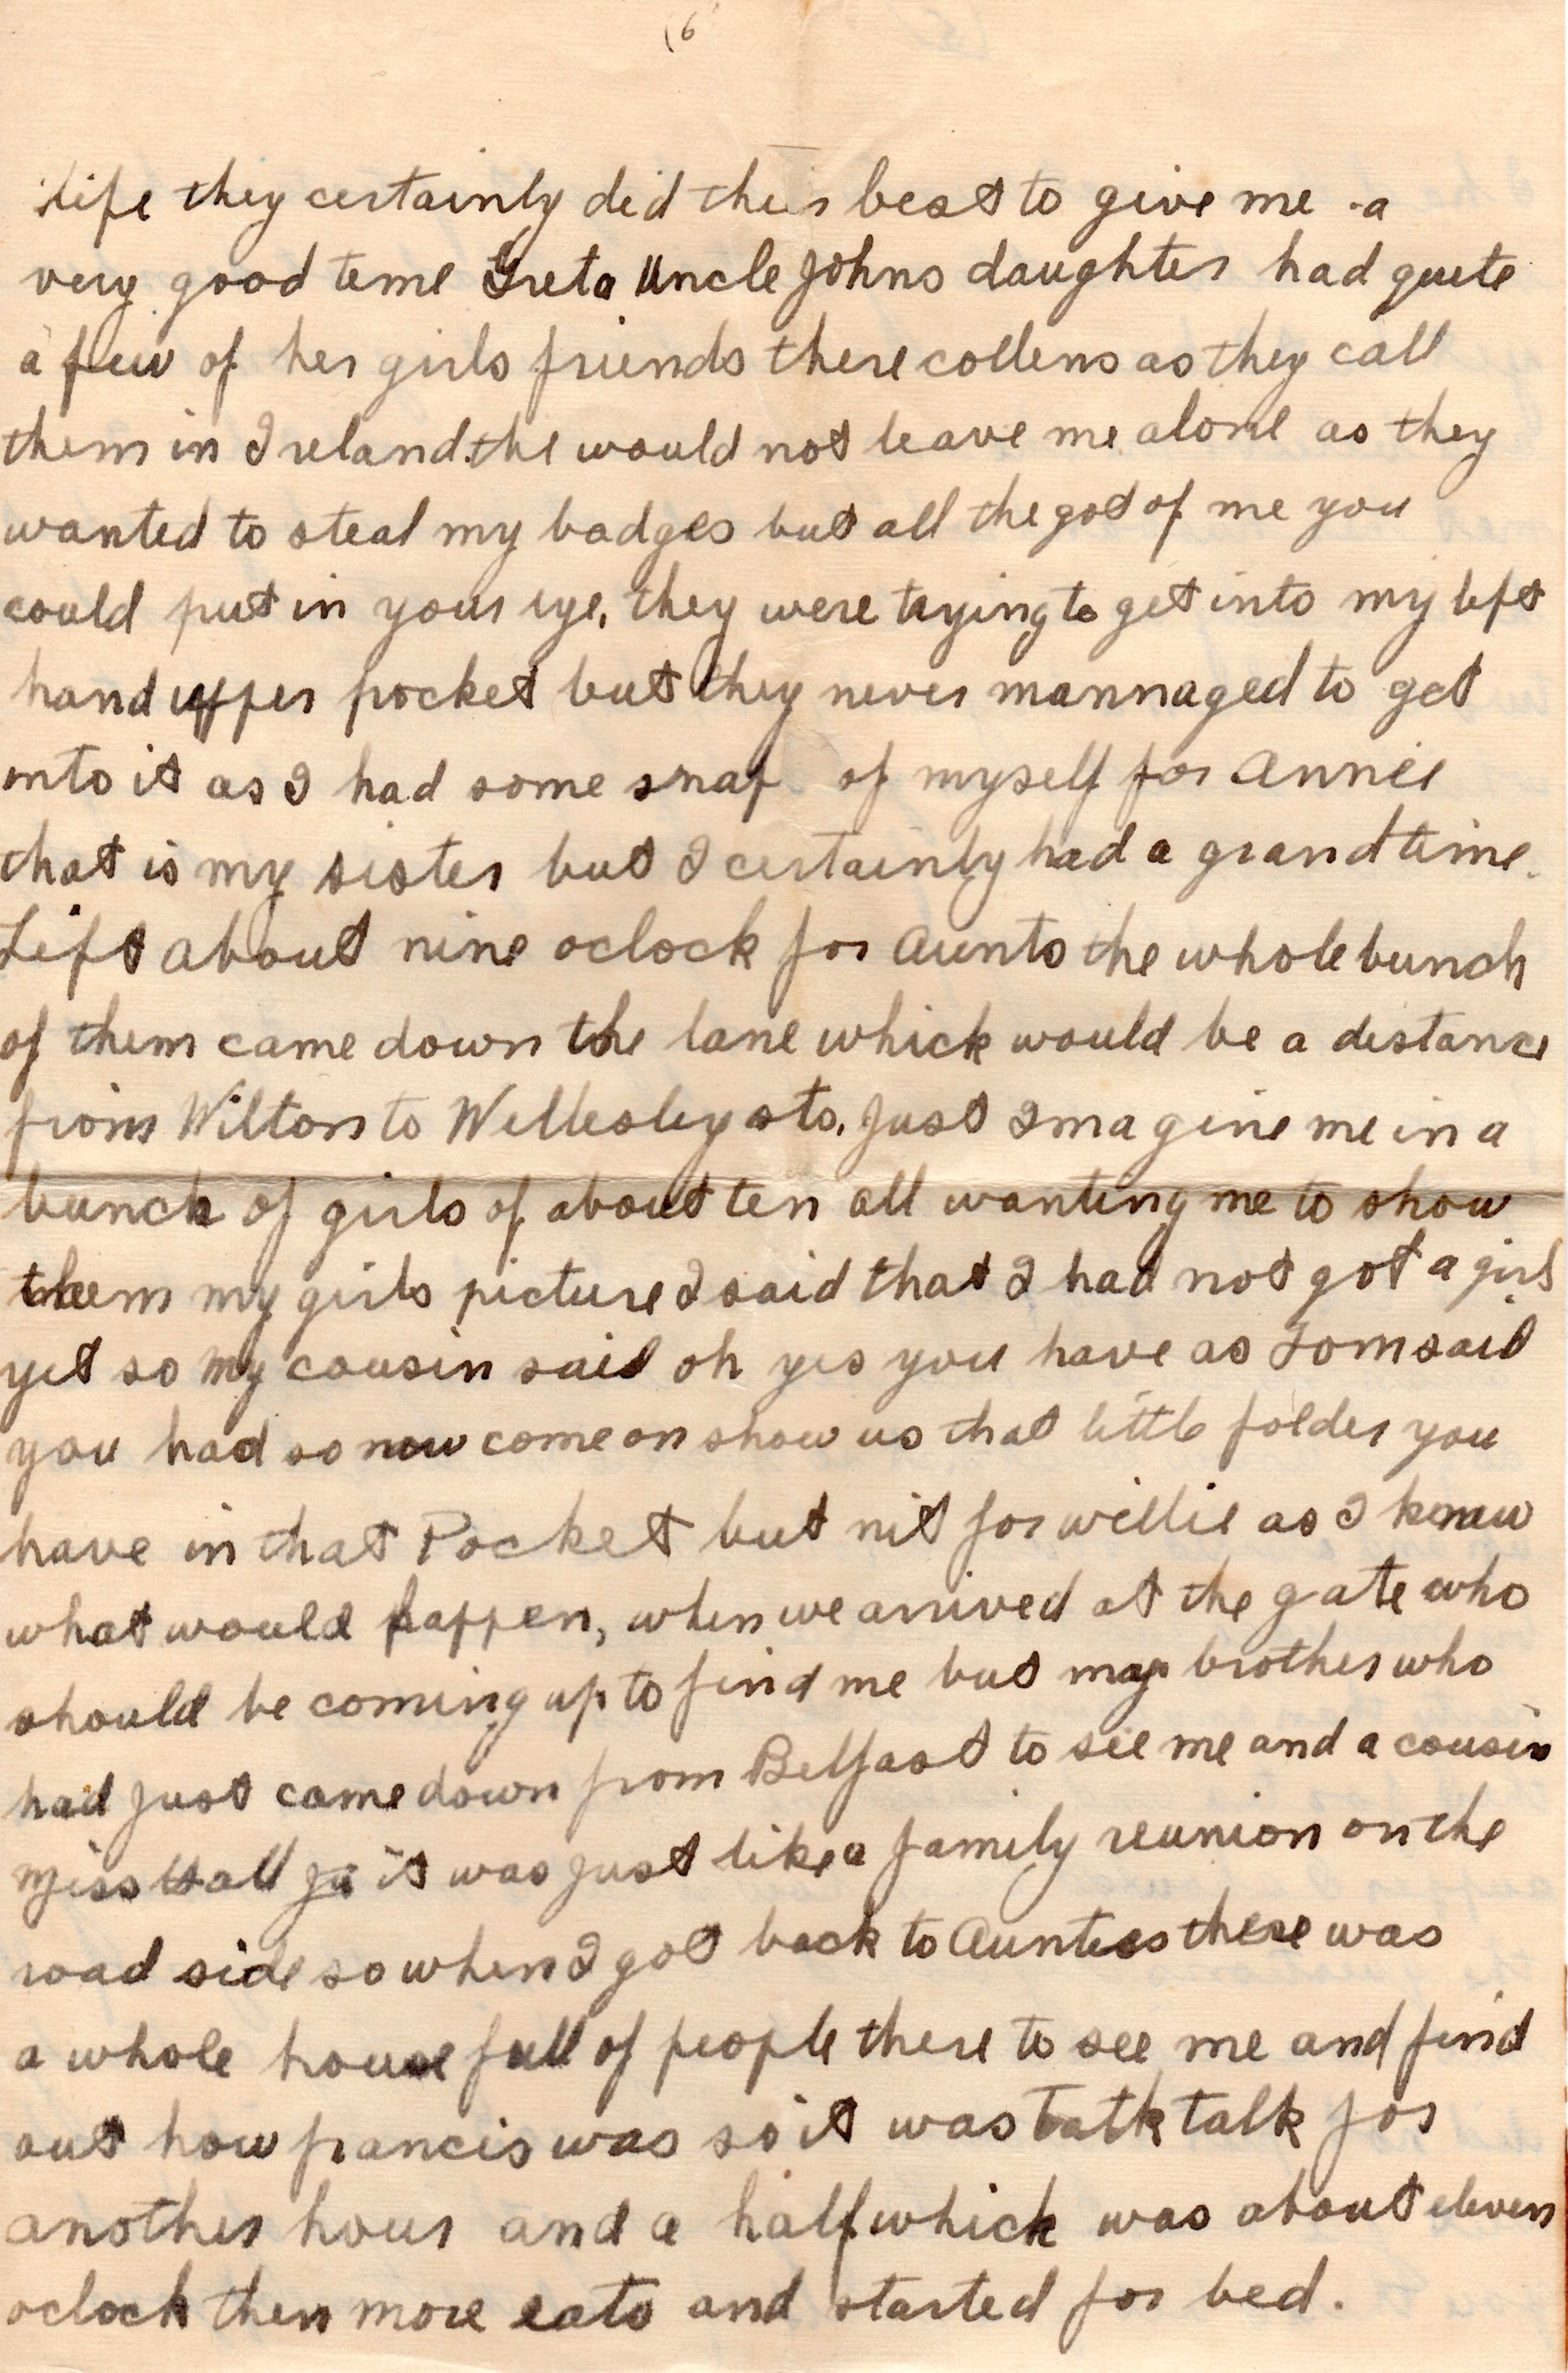 (6
life they certainly did their best to give me a
very good time Greta Uncle Johns daughter had quite
a few of her girls friends there collens as they call
them in Ireland. the would not leave me alone as they
wanted to steal my badges but all the got of me you
could put in your eye, they were trying to get into my left
hand upper pocket but they never mannaged to get
into it as I had some snap of myself for Annie
that is my sister but I certainly had a grand time.
Left about nine oclock for Aunts the whole bunch
of them came down the lane which would be a distance
from Wilton to Wellesley sts. Just Imagine me in a
bunch of girls of about ten all wanting me to show
them my girls picture I said that I had not got a girl
yet so my cousin said oh yes you have as Tom said
you had so now come on show us that little folder you
have in that Pocket but nit for willie as I knew
what would happen, when we arrived at the gate who
should be coming up to find me but my brother who
had just came down from Belfast to see me and a cousin
Miss Hall it was just like a family reunion on the
road side so when I got back to Aunties there was
a whole house full of people there to see me and find
out how francis was so it was Talk talk for
another hour and a half which was about eleven
oclock then more eats and started for bed.